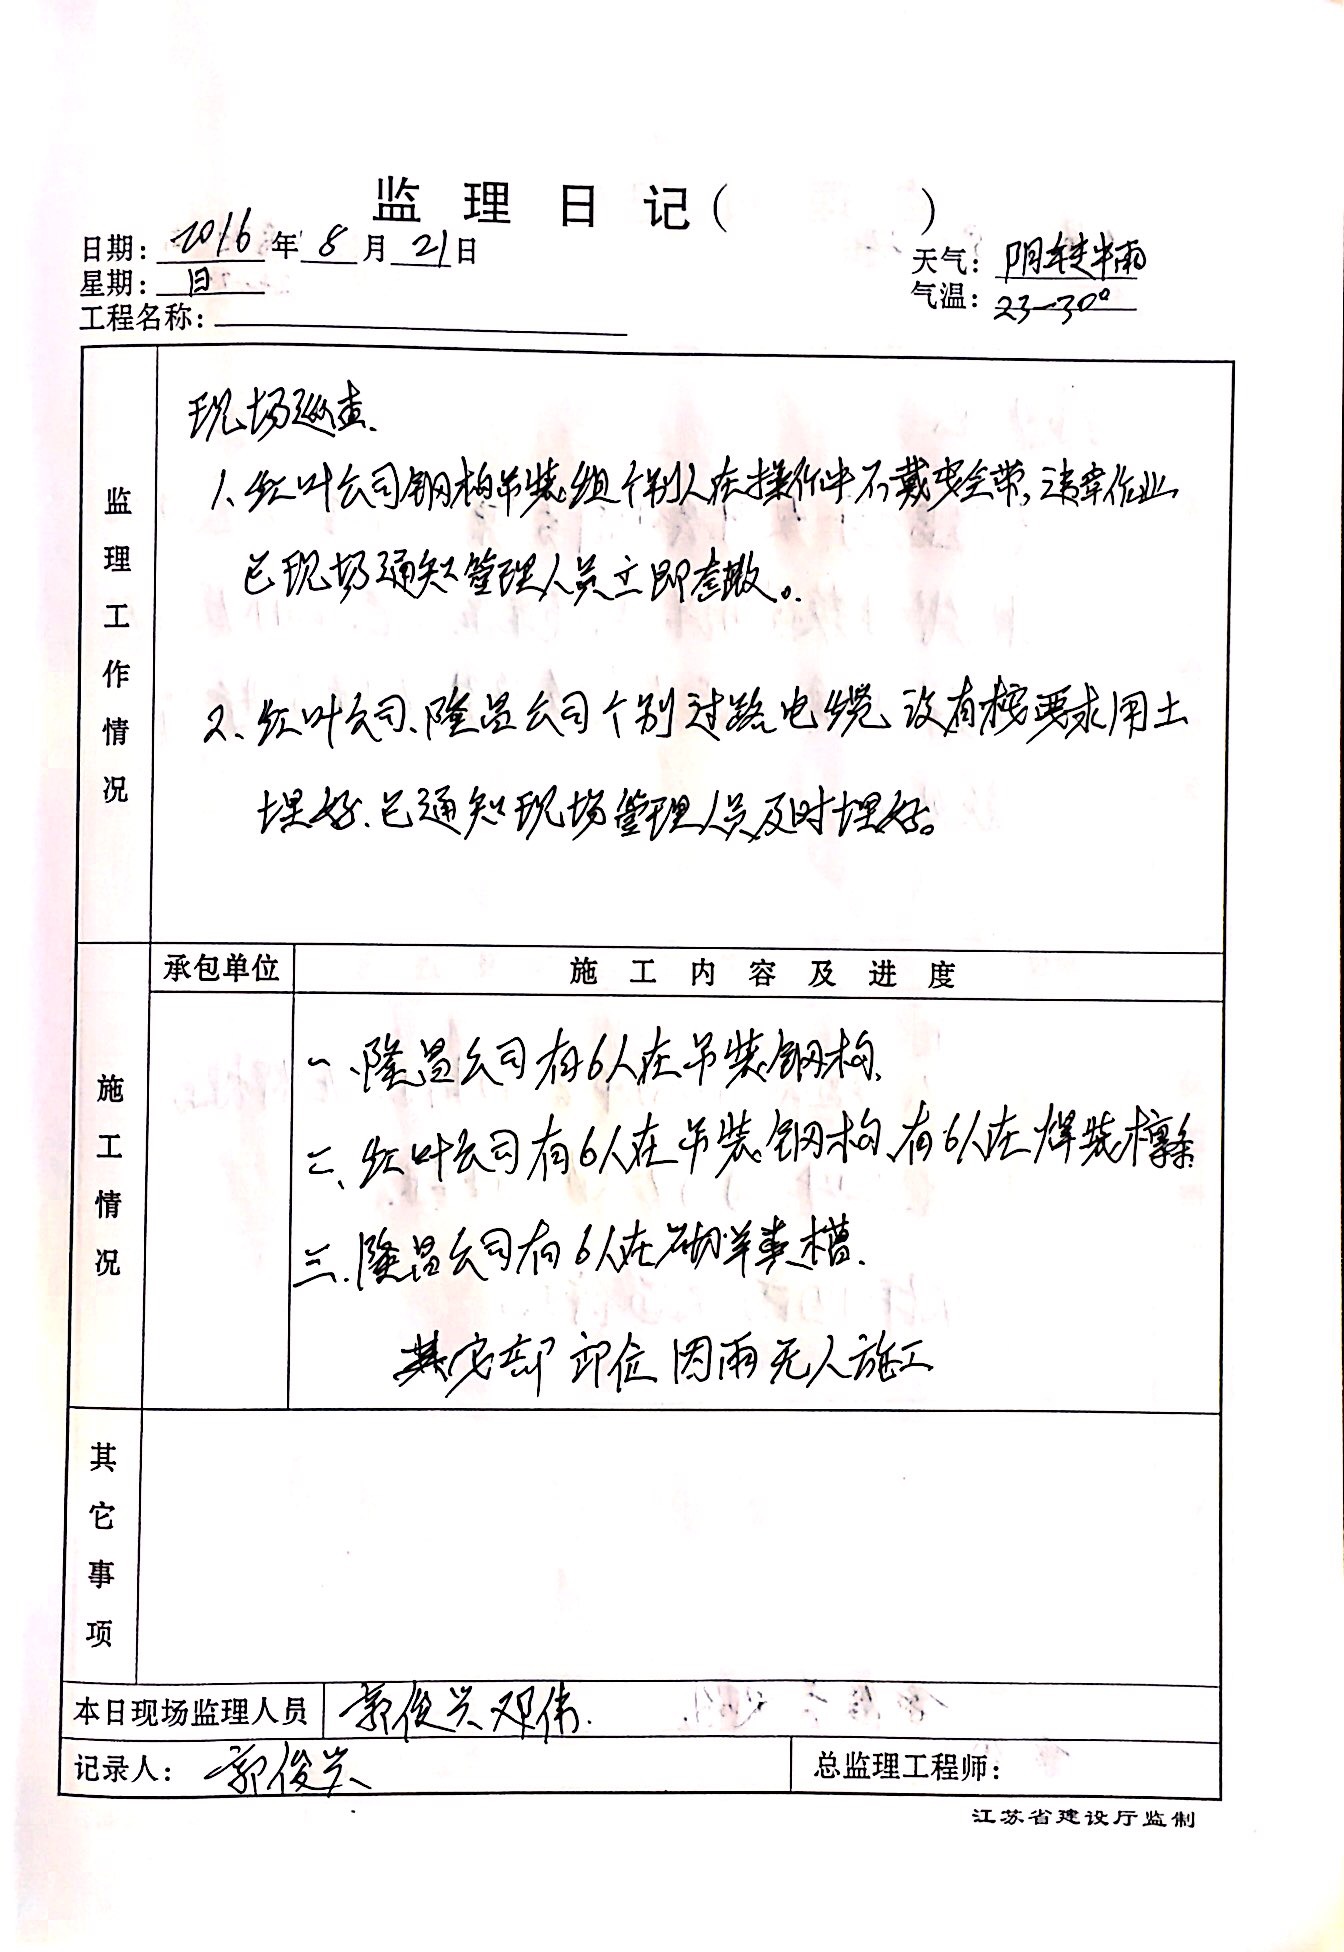 监理日记（ ）
日期：2016年8月21日
星期：日
天气：阴转中雨
气温：23-30°
工程名称：
监理工作情况
现场巡查.
1、红叶公司钢构吊装组个别人在操作中不戴安全带，违章作业
已现场通知管理人员立即整改。
2、红叶公司、隆昌公司个别过路电缆没有按要求用土
埋好、已通知现场管理人员及时埋好。
施工情况
承包单位
施工内容及进度
一、隆昌公司有6人在吊装钢构、
二、红叶公司有6人在吊装钢构、有6人在焊装檩条
三、隆昌公司有6人在砌羊粪槽.
其它部 位因雨无人施工
其它事项
本日现场监理人员 郭俊兴 邓伟.
记录人：郭俊兴
总监理工程师：
江苏省建设厅监制